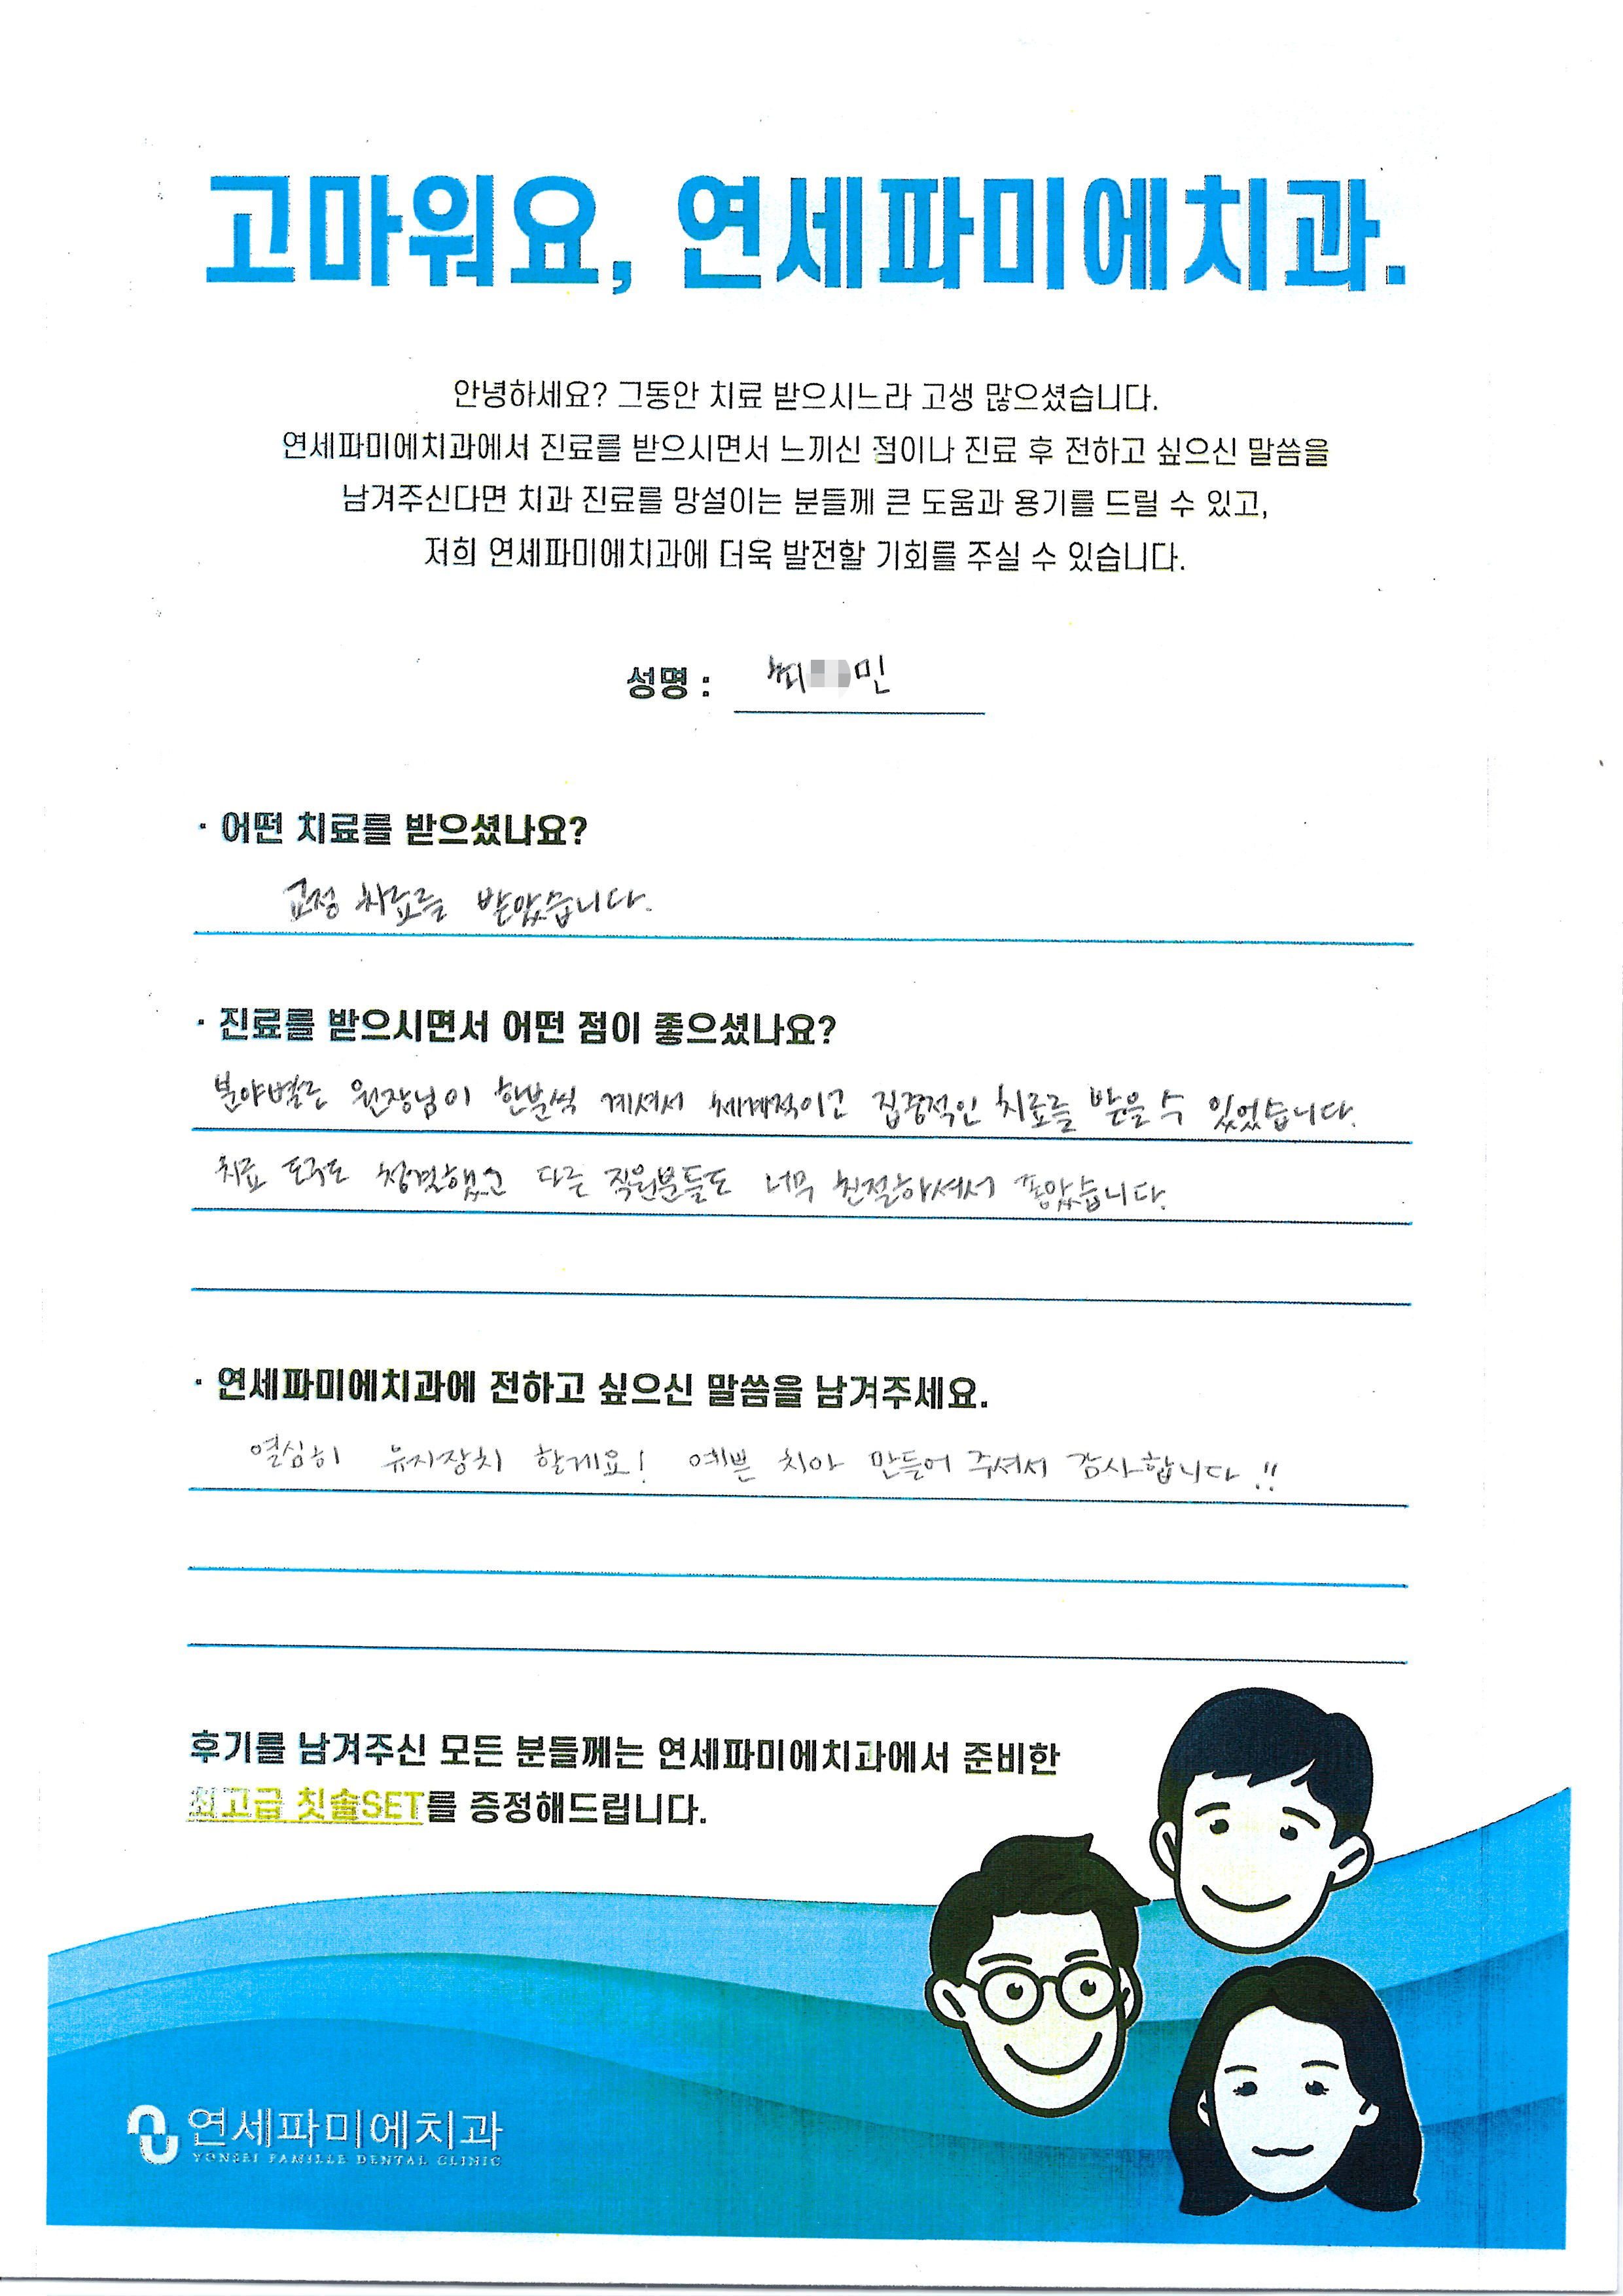 고마워요, 연세파미에치과.
안녕하세요? 그동안 치료 받으시느라 고생 많으셨습니다.
연세파미에치과에서 진료를 받으시면서 느끼신 점이나 진료 후 전하고 싶으신 말씀을
남겨주신다면 치과 진료를 망설이는 분들께 큰 도움과 용기를 드릴 수 있고,
저희 연세파미에치과에 더욱 발전할 기회를 주실 수 있습니다.
성명 : 최 민
· 어떤 치료를 받으셨나요?
교정 치료를 받았습니다.
· 진료를 받으시면서 어떤 점이 좋으셨나요?
분야별로 원장님이 한분씩 계셔서 체계적이고 집중적인 치료를 받을 수 있었습니다.
치료 도구도 청결했고 다른 직원분들도 너무 친절하셔서 좋았습니다.
· 연세파미에치과에 전하고 싶으신 말씀을 남겨주세요.
열심히 유지장치 할게요! 예쁜 치아 만들어 주셔서 감사합니다!!
후기를 남겨주신 모든 분들께는 연세파미에치과에서 준비한
최고급 칫솔SET를 증정해드립니다.
연세파미에치과
YONSEI FAMILLE DENTAL CLINIC